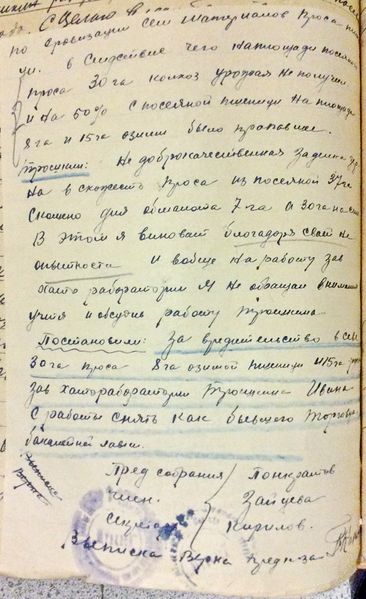 С Целого
по яровизации сем материалов проса
ул. в следствие чего на площади посеяного
проса 30 га колхоз урожая не получил
и на 50% с посеяной пшеници на площади
8 га и 15 га озими было пропавшее.
Трошкин: Не доброкачественная
на в схожесть проса из посеяной 37 га
скошено для обмолота 7 га а 30 га
В этом я виноват благодоря своей не
опытности и вобще на работу зав
хато раборатории я не обращал внимания
учил и обсудь работу Трошкина
Постановили: За вредительство в
30 га проса 8 га озимой пшеници и 15 га
Зав хаторабораторий Трошкина Ивана
с работы снять как бывшего торговца
бакалейной лавки.
Пред собрания Понкратов
член. Зайцева
секрет Кирилов.
Выписка Верна предк-за